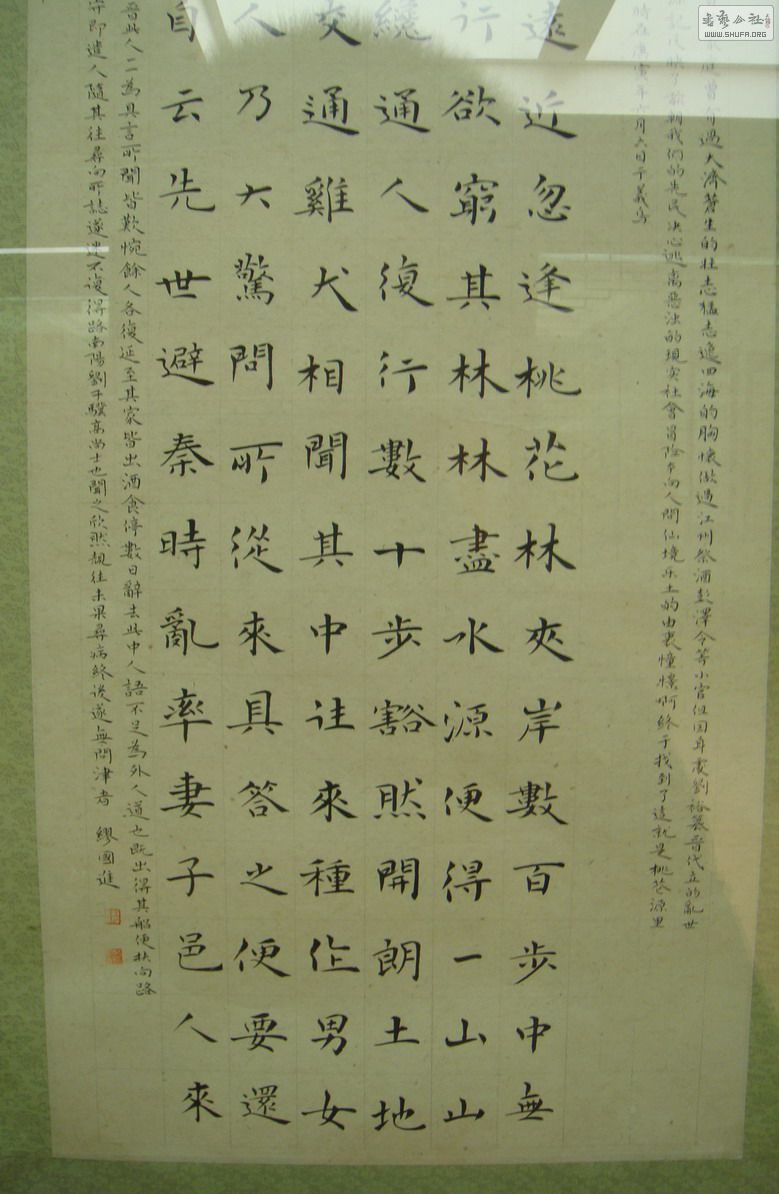 書藝公社
WWW.SHUFA.ORG
曾有過大濟蒼生的壯志猛志逸四海的胸懷做過江州祭酒彭澤令等小官但因身處劉裕篡晉代立的亂世
我們的先民决心逃离惡浊的現实社會冒險奔向人間仙境乐土的由衷憧憬啊終于找到了這就是桃花源里
時在庚寅年六月六日于義烏
遠近忽逢桃花林夾岸數百步中無
行欲窮其林林盡水源便得一山山
纔通人復行數十步豁然開朗土地
交通雞犬相聞其中往來種作男女
人乃大驚問所從來具答之便要還
自云先世避秦時亂率妻子邑人來
晉此人一一為具言所聞皆歎惋餘人各復延至其家皆出酒食停數日辭去此中人語不足為外人道也既出得其船便扶向路
守即遣人隨其往尋向所誌遂迷不復得路南陽劉子驥高尚士也聞之欣然親往未果尋病終後遂無問津者 繆國進